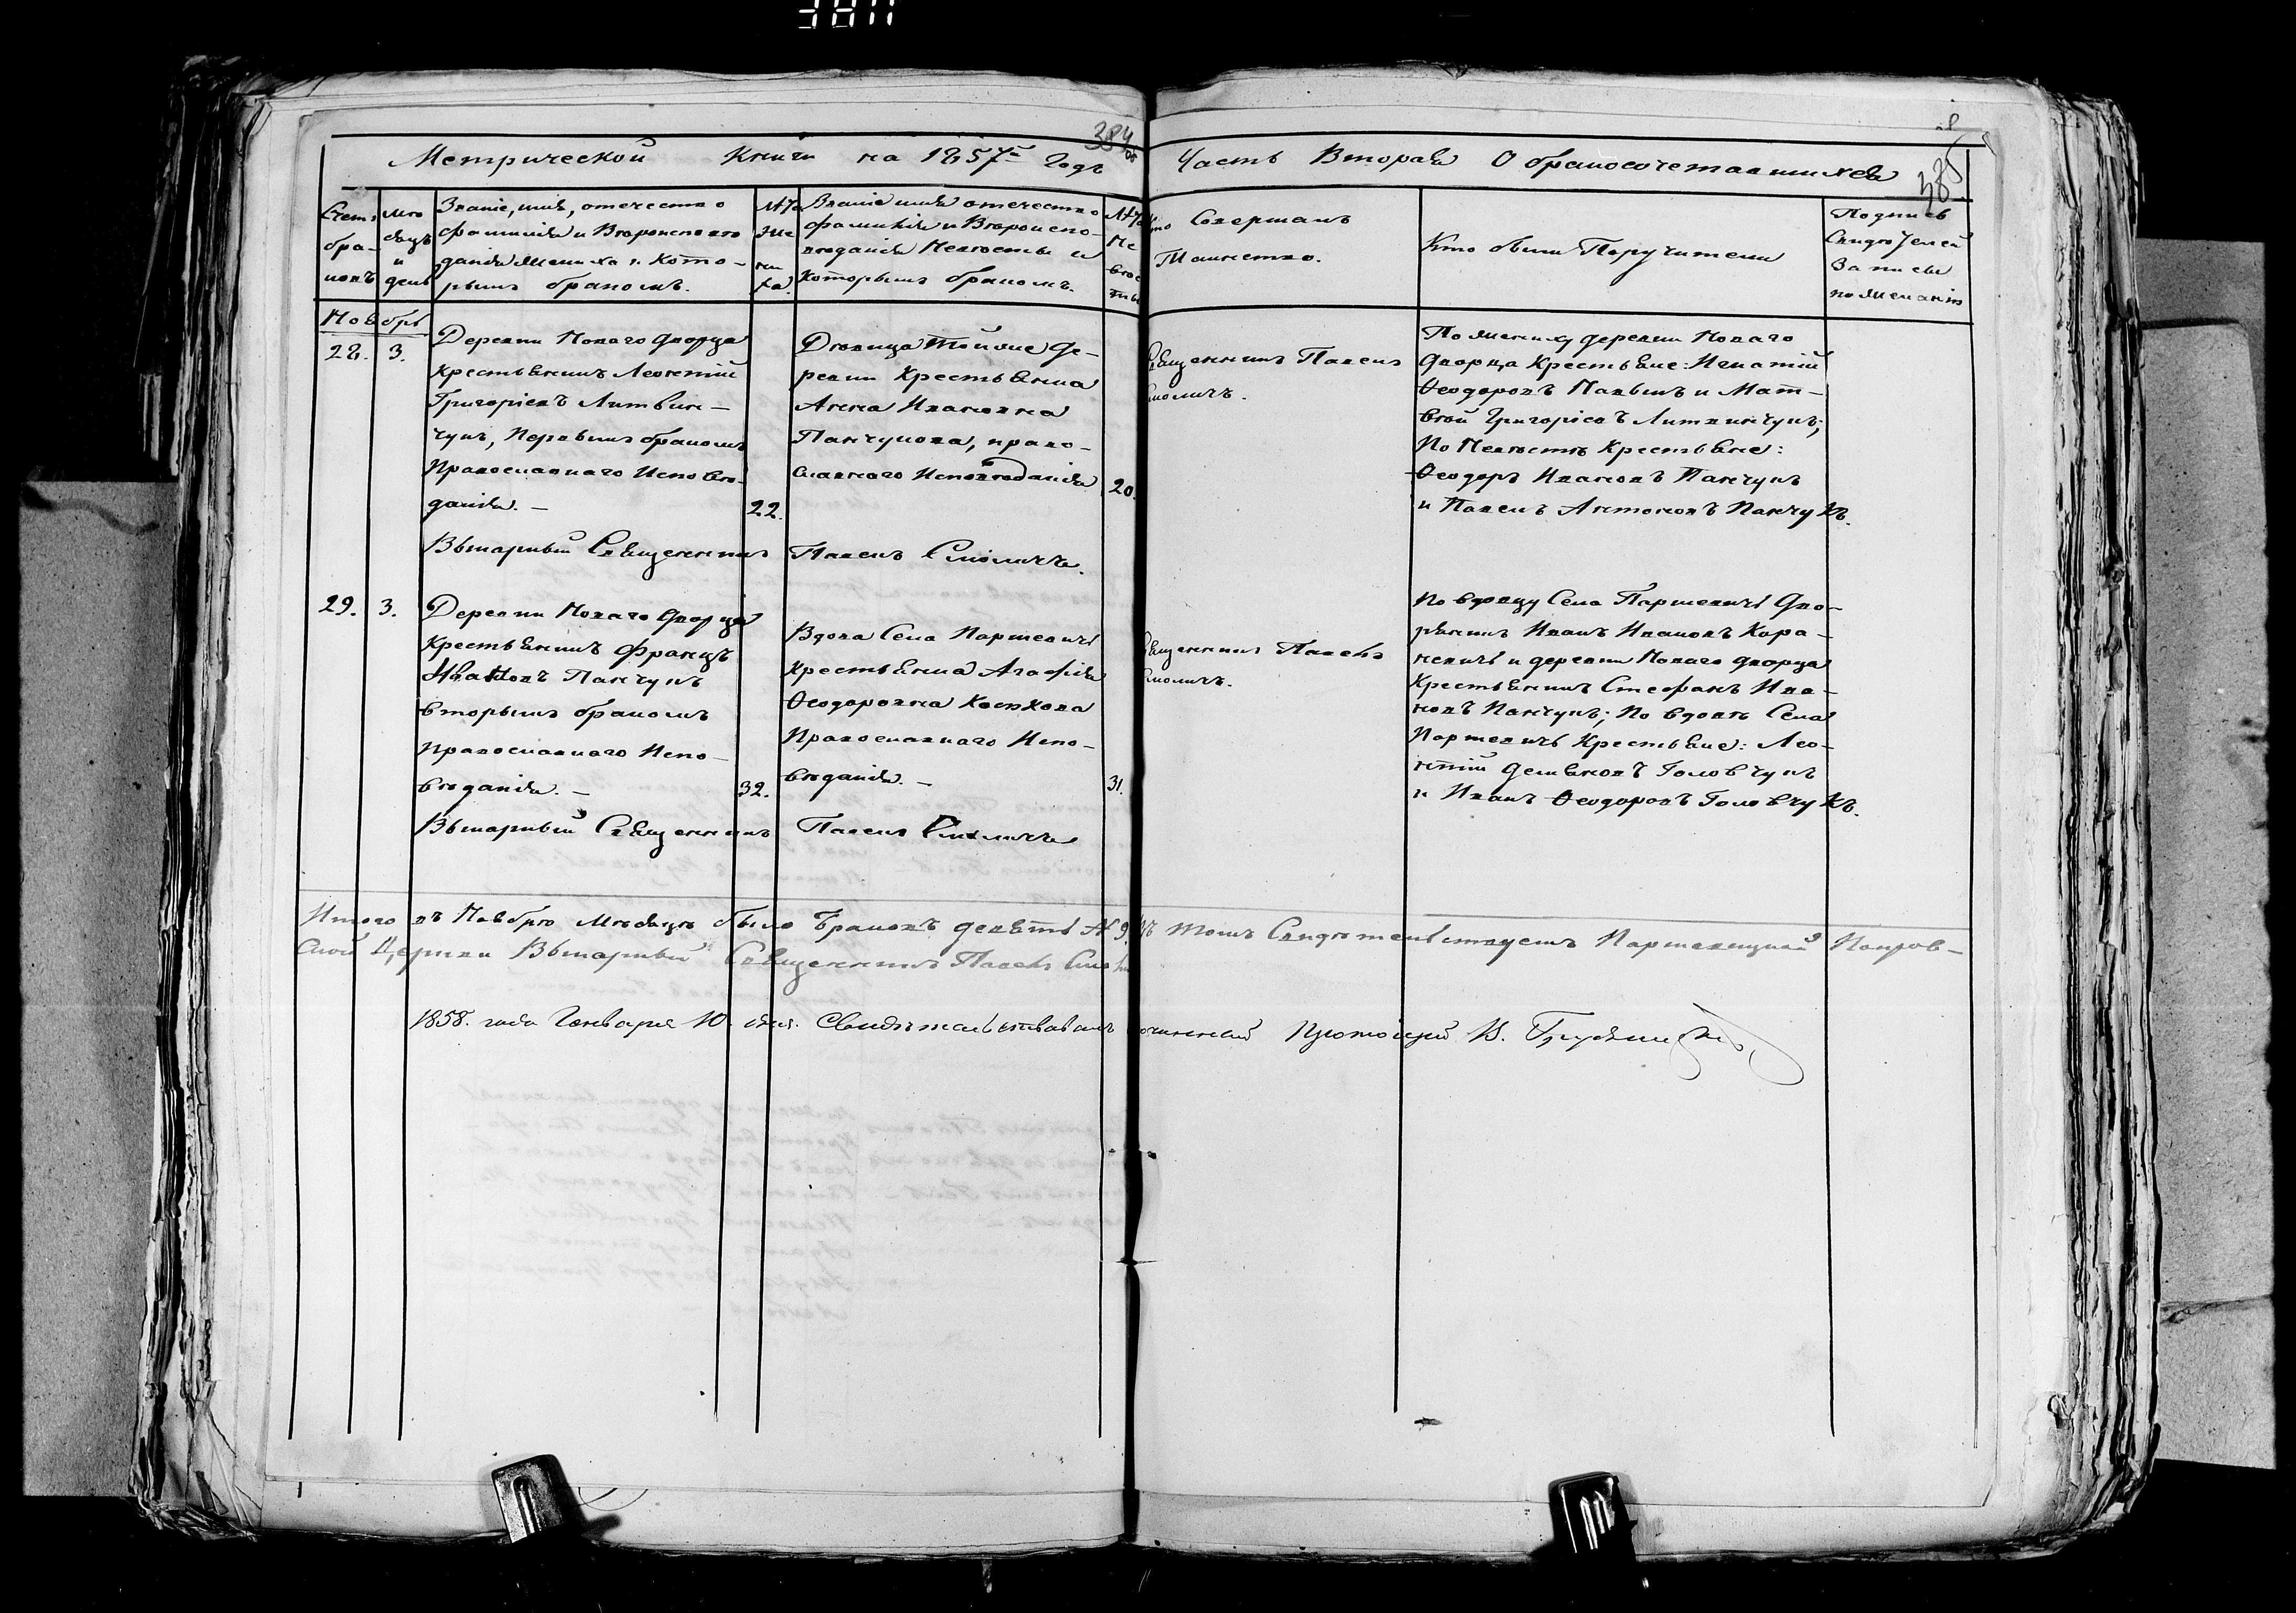 384
Метрической Книги на 1857й Годъ
Часть Вторая О бракосочетавшихся
385
Счетъ
бра-
ковъ
Мѣ
сяцъ
и
день
Званіе, имя, отечество
фамилія и Вѣроисповѣ
данія Жениха и Кото-
рымъ бракомъ.
Лѣта
Же
ни
ха.
Званіе имя отечество
фамилія и Вѣроиспо-
вѣданія Невѣсты и
Которымъ бракомъ.
Лѣта
Не
вѣс
ты
Кто Совершалъ
Таинство.
Кто были Поручители
Подпись
Свидѣтелей
Записи
по желанію
Ноябрь
28.
3.
Деревни Новаго Дворца
Крестьянинъ Леонтій
Григоріевъ Литвин-
чукъ, Первымъ бракомъ
Православнаго Исповѣ-
данія. —
22.
Дѣвица Тойже Де-
ревни Крестьянка
Анна Иванова
Панчукова, право-
славнаго Исповѣданія
20.
Священникъ Павелъ
Смоличъ.
По Жениху деревни Новаго
Дворца Крестьяне: Игнатій
Ѳеодоровъ Павыкъ и Мат-
вѣй Григоріевъ Литвинчукъ;
По Невѣстѣ Крестьяне:
Ѳеодоръ Ивановъ Панчукъ
и Павелъ Антоновъ Панчукъ.
Викарный Священникъ Павелъ Смоличъ.
29.
3.
Деревни Новаго Дворца
Крестьянинъ Францъ
Ивановъ Панчукъ
вторымъ бракомъ
Православнаго Испо-
вѣданія. —
32.
Вдова Села Паршевичъ
Крестьянка Агафія
Ѳеодоровна
Православнаго Испо-
вѣданія. —
31.
Священникъ Павелъ
Смоличъ.
По вдовцу Села Паршевичъ Дво-
рянинъ Иванъ Ивановъ Кора-
невичъ и деревни Новаго дворца
Крестьянинъ Стефанъ Ива-
новъ Панчукъ; По вдовѣ Села
Паршевичъ Крестьяне: Лео-
нтій Демьяновъ Головчукъ
и Иванъ Ѳеодоровъ Головчукъ.
Викарный Священникъ Павелъ Смоличъ
Итого въ Ноябрѣ Мѣсяцѣ было Браковъ девять № 9. Въ томъ Свидѣтельствуемъ Паршевицкой Покров-
ской Церкви Викарный Священникъ Павелъ
1858. года Генваря 10. дня. Свидѣтельствовалъ Протоіерей